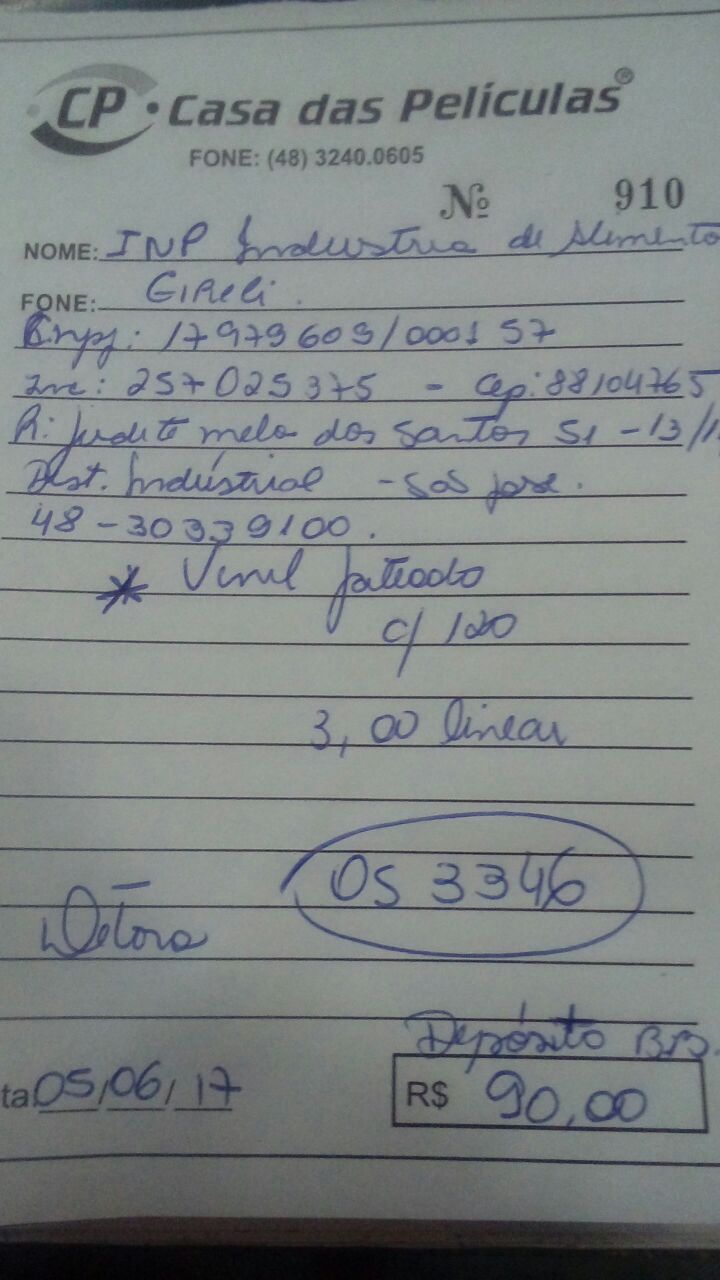 CP • Casa das Películas®
FONE: (48) 3240.0605
Nº 910
NOME: INP Industria de Alimento
FONE: Eireli.
Cnpj: 17979609/0001 57
Inc: 257025375 - Cep: 88104765
R: Judite melo dos Santos 51 - 13/1
Dist. Indústrial - São jose.
48-30339100.
* Vinil jateado
c/ 120
3,00 linear
OS 3346
Depósito BB.
ta 05/06/17
R$ 90,00